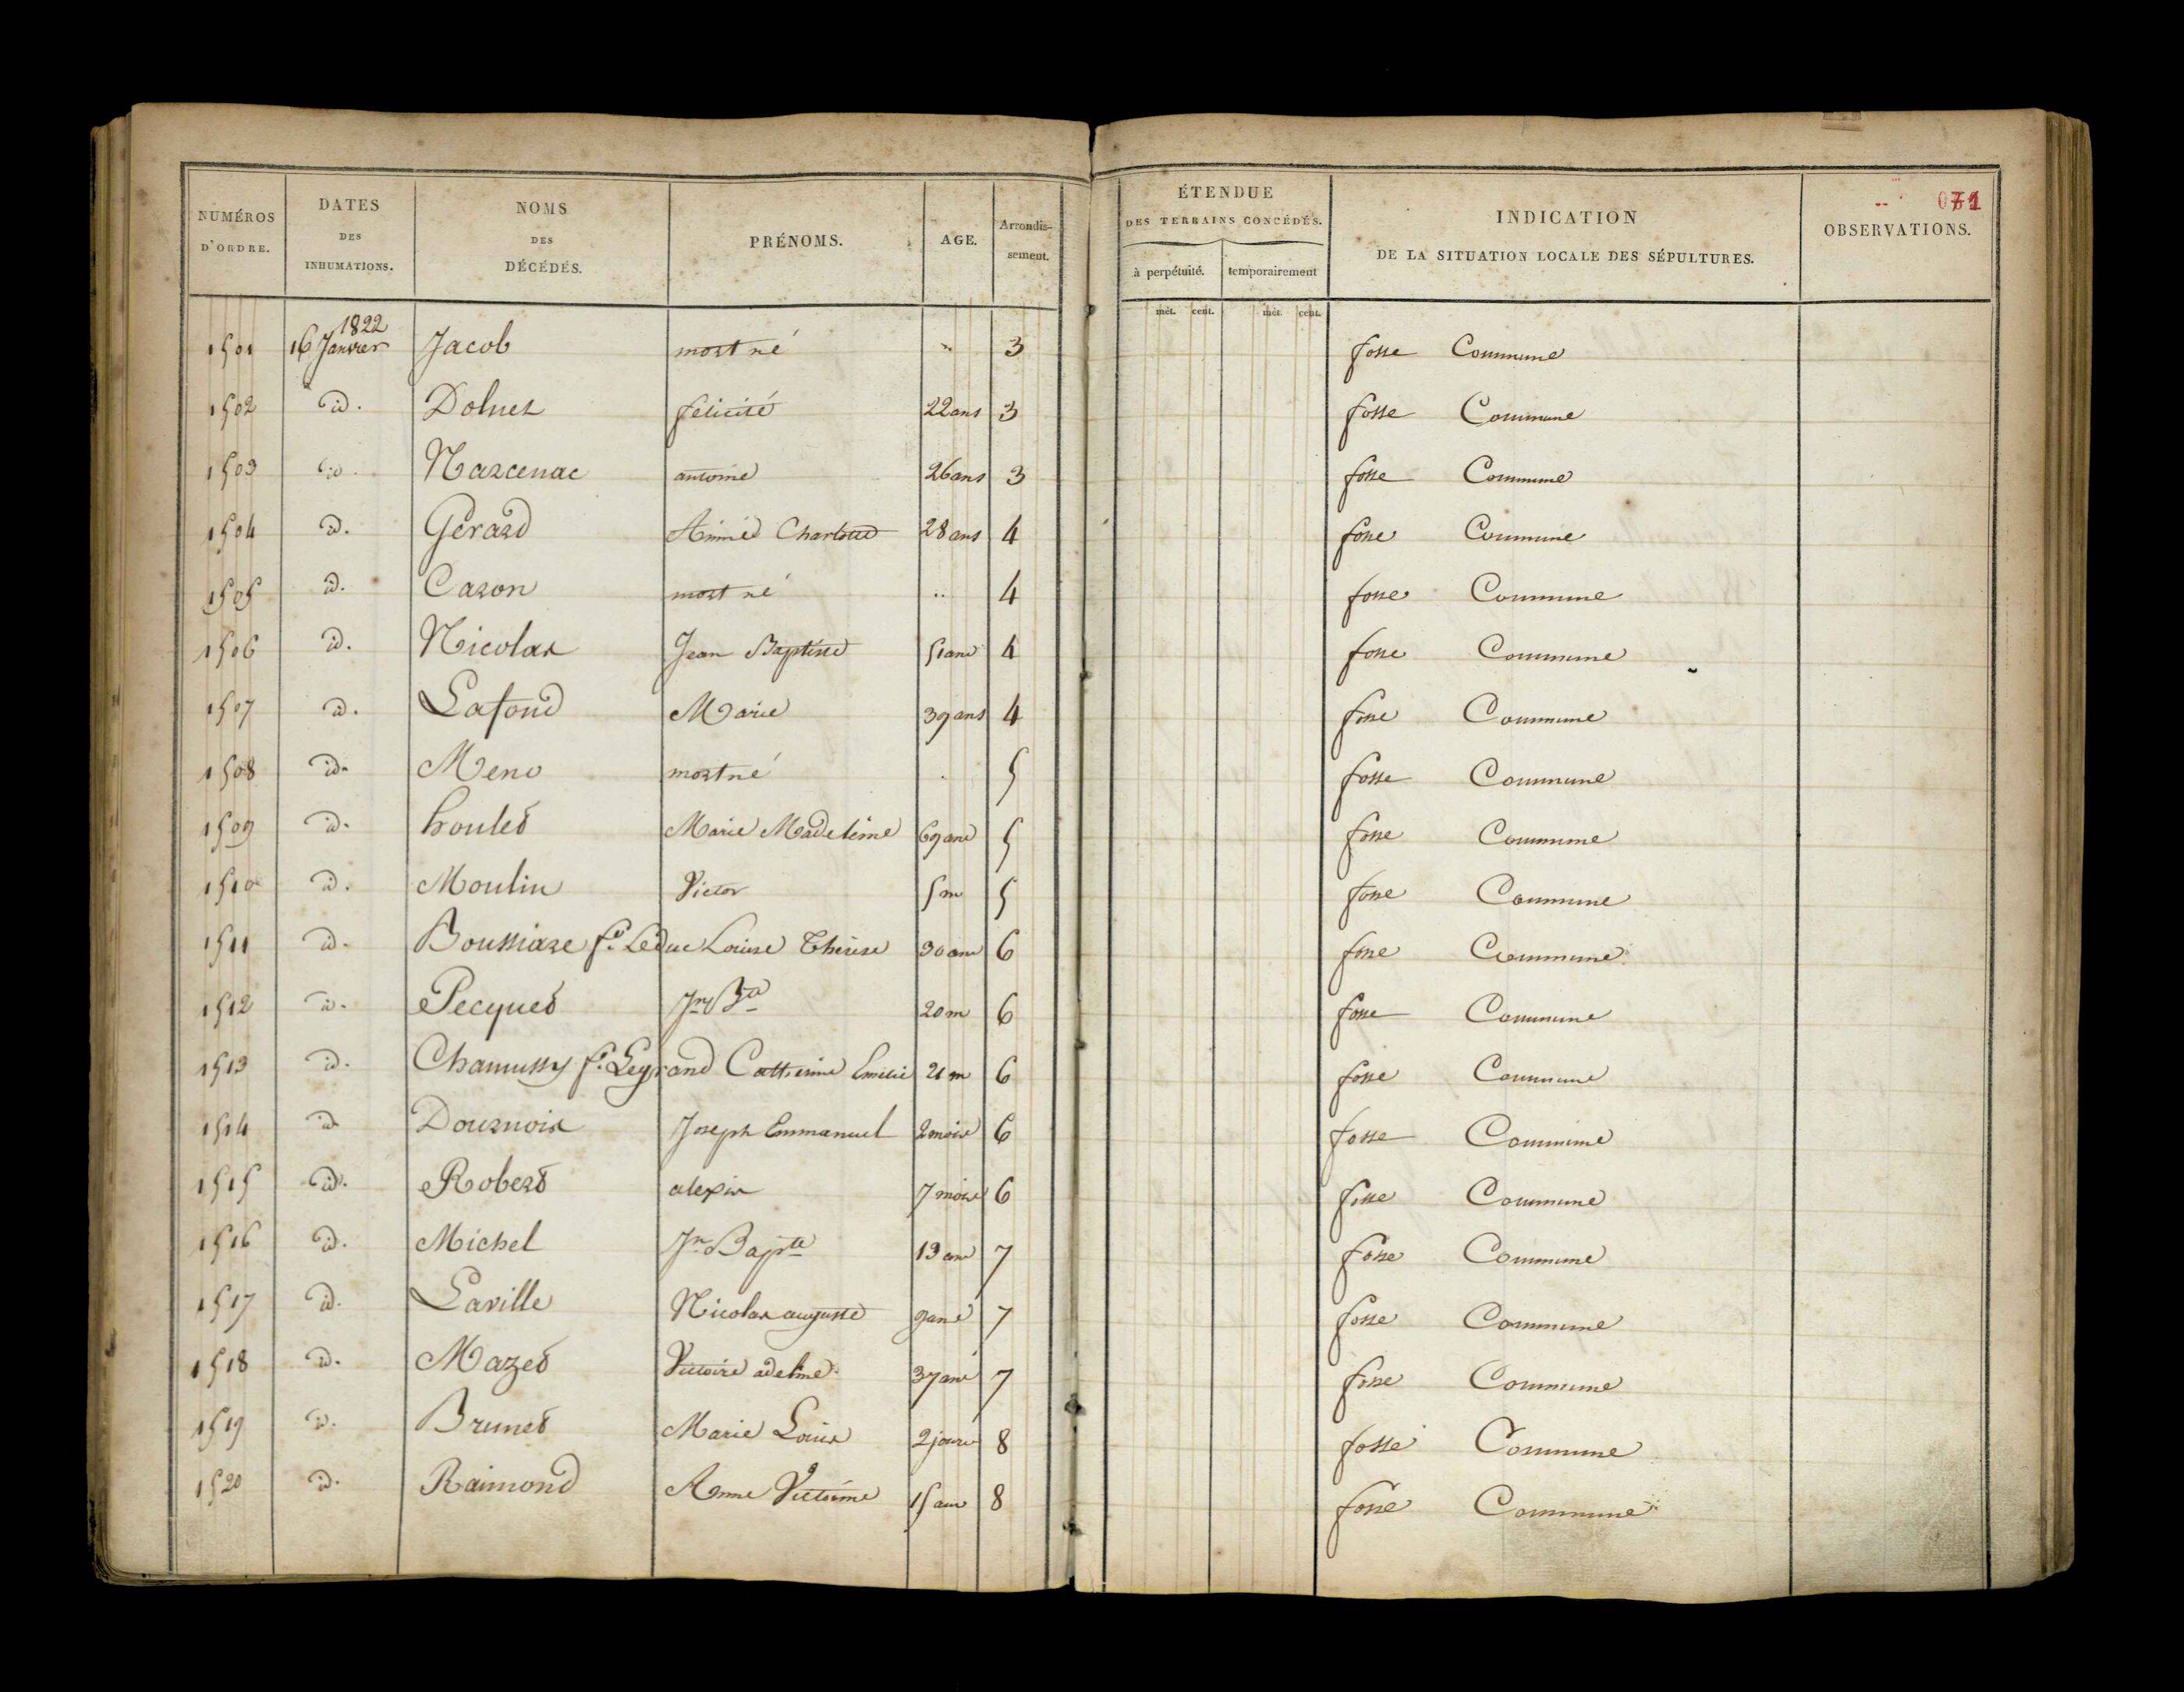 NUMÉROS D'ORDRE. DATES DES INHUMATIONS. NOMS DES DÉCÉDÉS. PRÉNOMS. AGE. Arrondissement. ÉTENDUE DES TERRAINS CONCÉDÉS. à perpétuité. temporairement INDICATION DE LA SITUATION LOCALE DES SÉPULTURES. OBSERVATIONS. 071
mèt. cent. mèt. cent.
1822
1501 16 Janvier Jacob mort né 3 fosse Commune
1502 id. felicité 22 ans 3 fosse Commune
1503 id. antoine 26 ans 3 fosse Commune
1504 id. Gérard Aimée Charlotte 28 ans 4 fosse Commune
1505 id. Caron mort né 4 fosse Commune
1506 id. Nicolas Jean Baptiste 51 ans 4 fosse Commune
1507 id. Lafond Marie 39 ans 4 fosse Commune
1508 id. mort né 5 fosse Commune
1509 id. houlet Marie Madeleine 69 ans 5 fosse Commune
1510 id. Moulin Victor 5 m 5 fosse Commune
1511 id. fe. Leduc Louise Thérèse 30 ans 6 fosse Commune
1512 id. Pecquet Jn Bte 20 m 6 fosse Commune
1513 id. Chamussy fe. Legrand Catherine Emélie 21 m 6 fosse Commune
1514 id. Dournois Joseph Emmanuel 2 mois 6 fosse Commune
1515 id. Robert alexis 7 mois 6 fosse Commune
1516 id. Michel Jn Bapte 13 ans 7 fosse Commune
1517 id. Laville Nicolas auguste 9 ans 7 fosse Commune
1518 id. Mazet Victoire adeline 37 ans 7 fosse Commune
1519 id. Brunet Marie Louis 2 jours 8 fosse Commune
1520 id. Raimond Anne Victorine 15 ans 8 fosse Commune